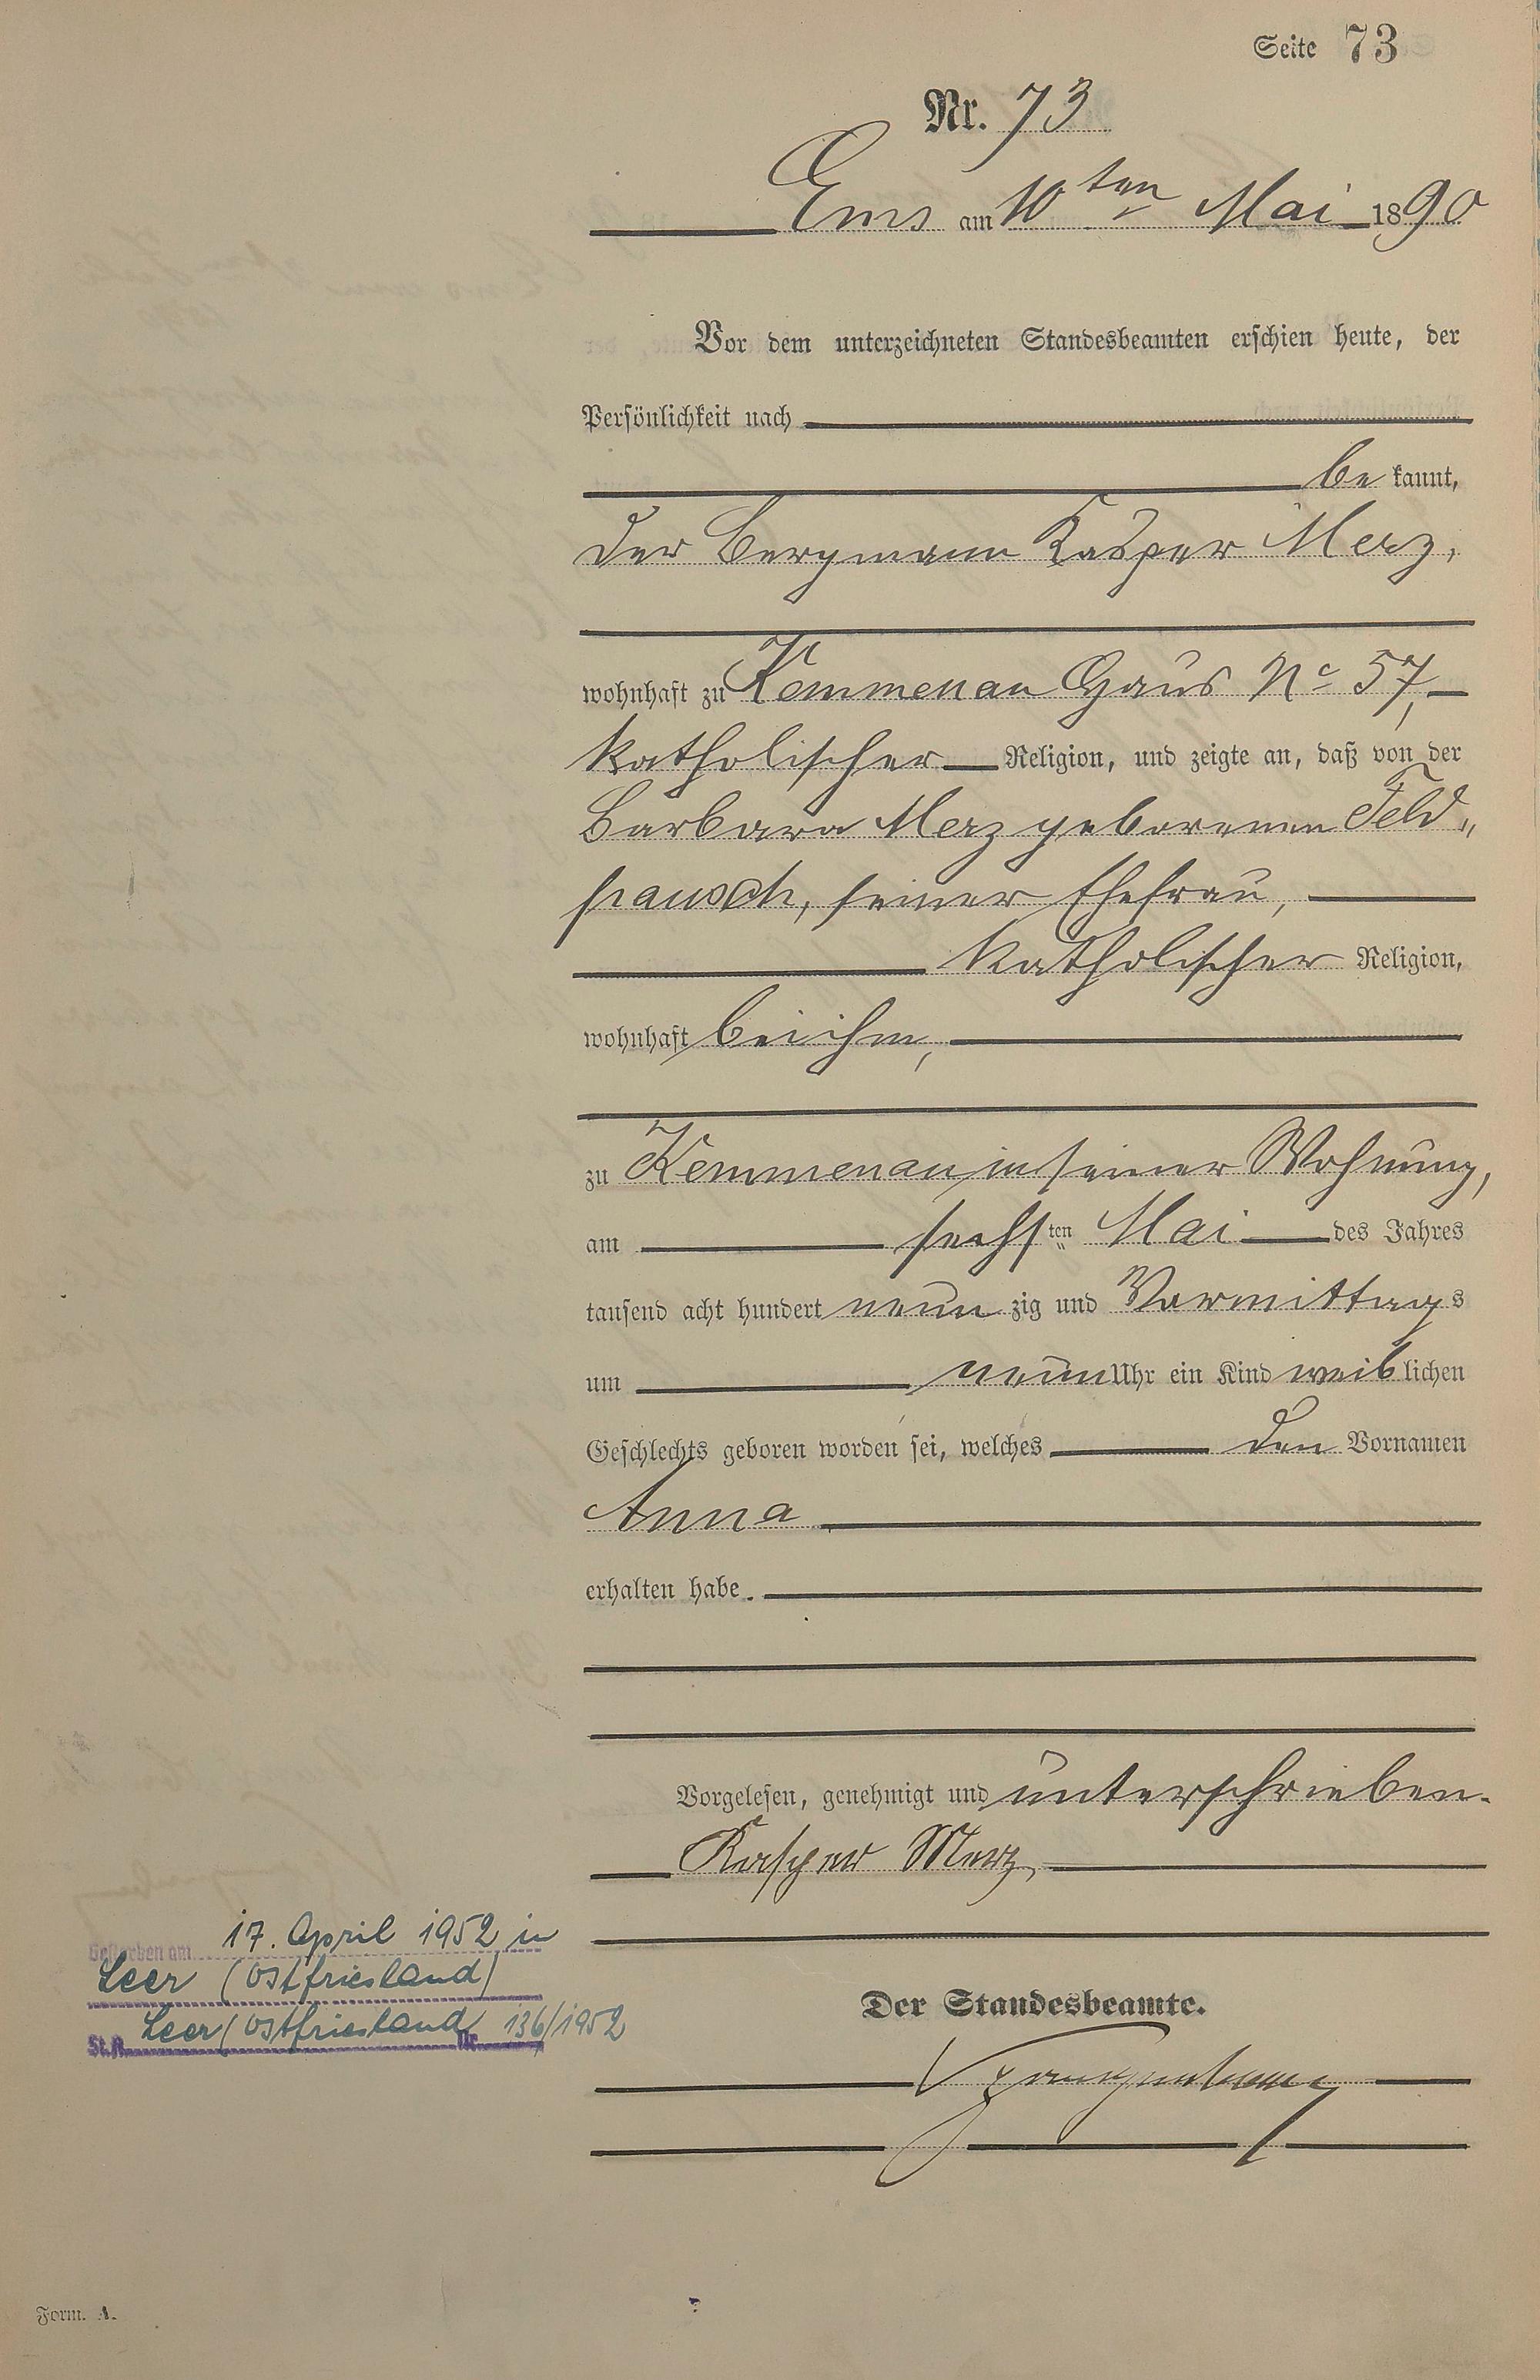 Seite 73
Nr. 73
Ems am 10ten Mai 1890
Vor dem unterzeichneten Standesbeamten erschien heute, der
Persönlichkeit nach
be kannt,
der Bergmann Kasper Merz,
wohnhaft zu Kemmenau Haus No 57,
katholischer Religion, und zeigte an, daß von der
Barbara Merz geborenen Feld„
pausch, seiner Ehefrau,
katholischer Religion,
wohnhaft bei ihm,
zu Kemmenau in seiner Wohnung,
am sechsten Mai des Jahres
tausend acht hundert neun zig und Vormittags
um neun Uhr ein Kind weiblichen
Geschlechts geboren worden sei, welches den Vornamen
Anna
erhalten habe.
Vorgelesen, genehmigt und unterschrieben.
Kasper Merz
Gestorben am 17. April 1952 in
Leer (Ostfriesland)
St.A. Leer (Ostfriesland Nr. 136/1952
Der Standesbeamte.
Form. A.